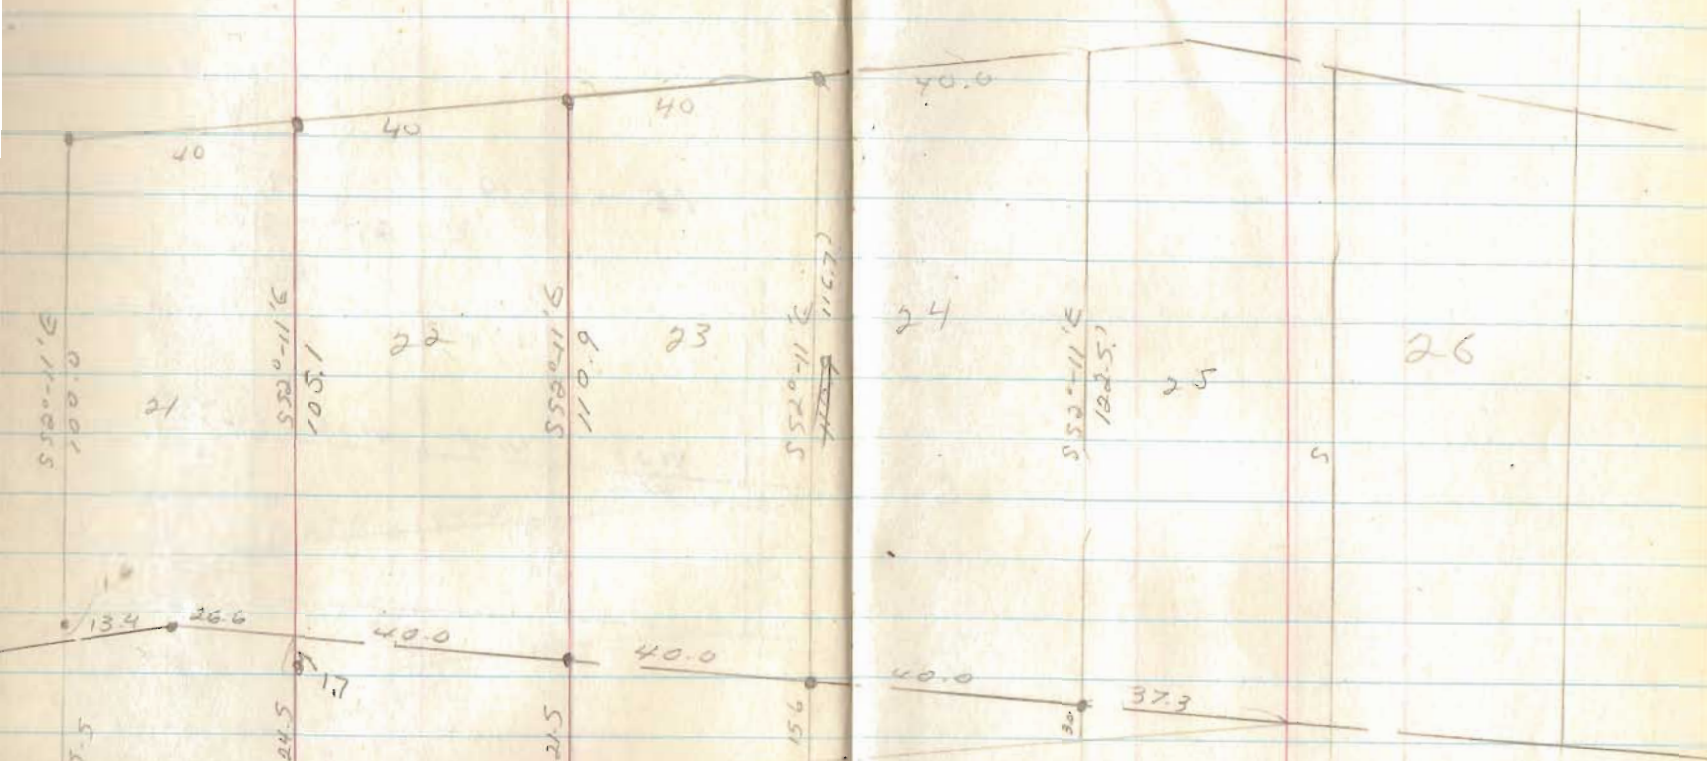 40
40
40
40.0
S52°-11'E
100.0
21
S52°-11'E
105.1
22
S52°-11'E
110.9
23
S52°-11'E
116.7
24
S52°-11'E
122.5
25
S
26
13.4
26.6
40.0
40.0
40.0
37.3
1.7
5.5
24.5
21.5
15.6
3.0